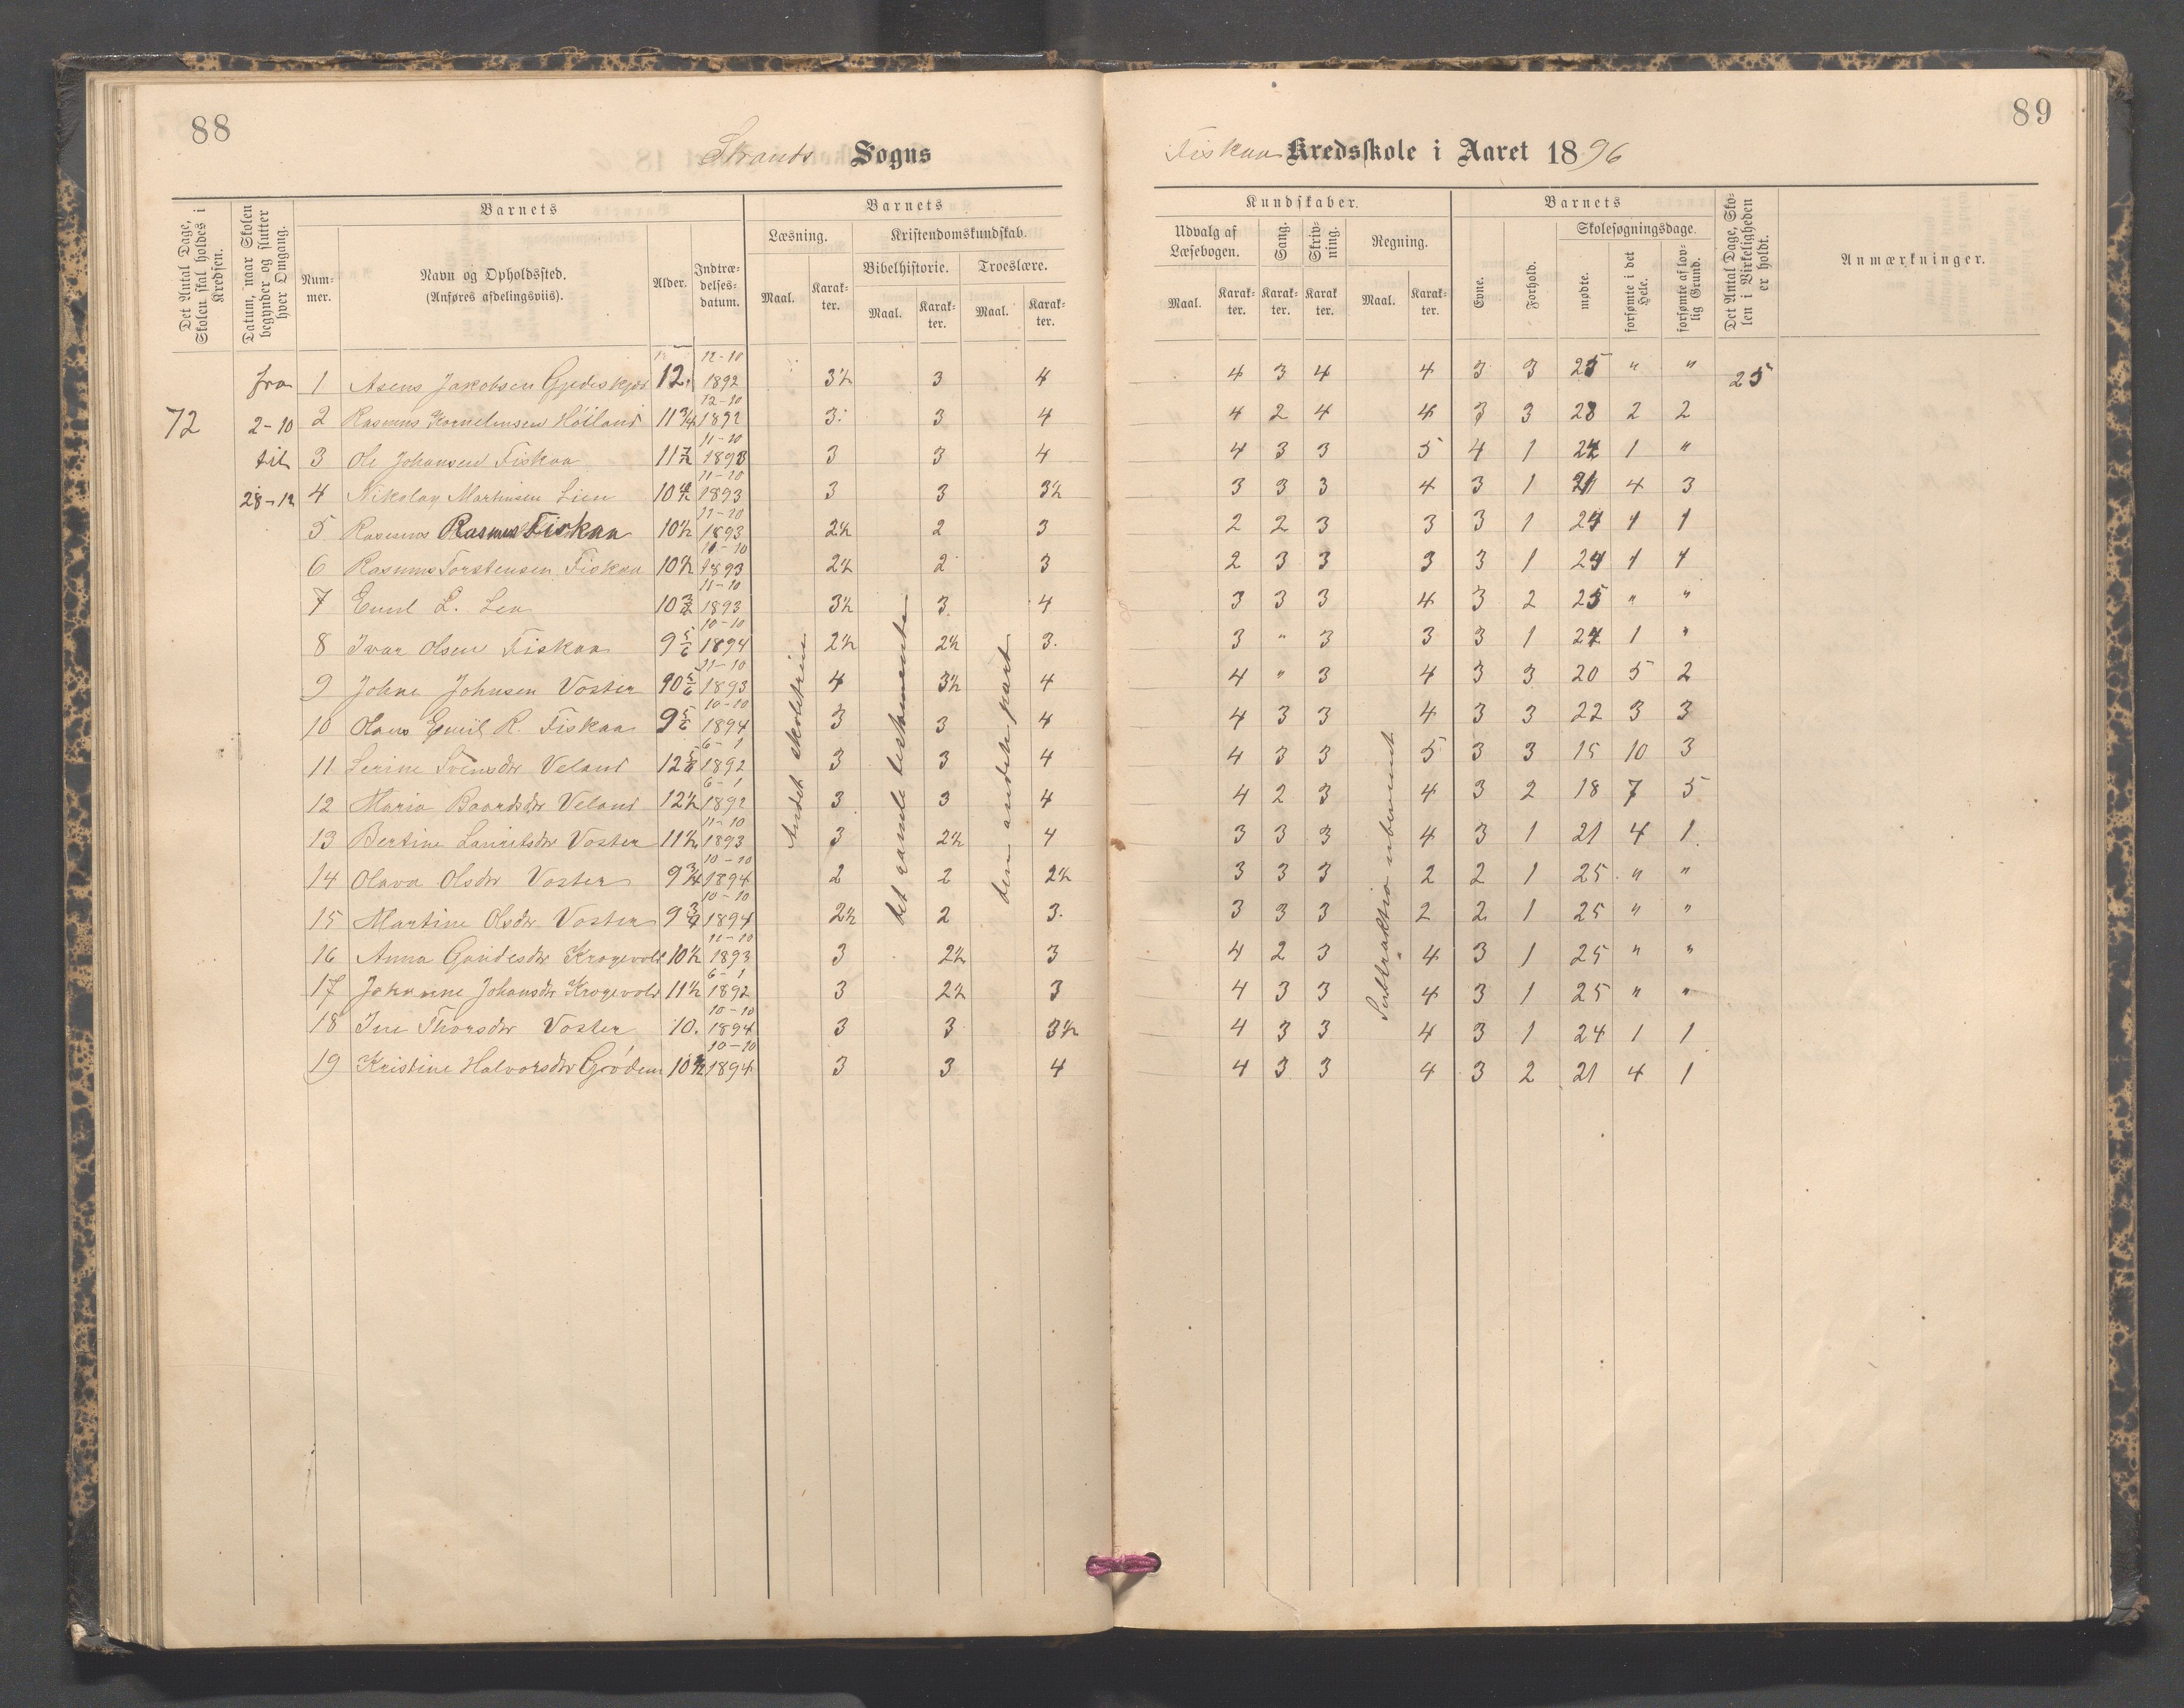 88
89
Strands Sogns
Fiskaa Kredsskole i Aaret 1896
Det Antal Dage, Skolen skal holdes i Kredsen.
Datum, naar Skolen begynder og slutter hver Omgang.
Barnets
Nummer.
Navn og Opholdssted. (Anføres afdelingsviis).
Alder.
Indtrædelsesdatum.
Barnets
Læsning.
Kristendomskundskab.
Bibelhistorie.
Troeslære.
Maal.
Karakter.
Maal.
Karakter.
Maal.
Karakter.
Kundskaber.
Udvalg af Læsebogen.
Sang.
Skrivning.
Regning.
Maal.
Karakter.
Karakter.
Karakter
Maal.
Karakter.
Barnets
Evne.
Forhold.
Skolesøgningsdage.
mødte.
forsømte i det Hele.
forsømte af lovlig Grund.
Det Antal Dage, Skolen i Virkeligheden er holdt.
Anmærkninger.
72
fra
2-10
til
28-12
1 Asens Jakobsen 12. 12-10 1892 3½ 3 4 4 3 4 4 3 3 25 " " 25
2 Rasmus Kornelinsen Høiland 11¾ 12-10 1892 3. 3 4 4 2 4 4 3 3 23 2 2
3 Ole Johansen Fiskaa 11½ 11-10 1893 3 3 4 4 3 3 5 4 1 24 1 "
4 Nikolay Martinsen Lien 10½ 11-10 1893 3 3 3½ 3 3 3 4 3 1 21 4 3
5 Rasmus Rasmus Fiskaa 10½ 11-10 1893 2½ 2 3 2 2 3 3 3 1 24 1 1
6 Rasmus Torstensen Fiskaa 10½ 11-10 1893 2½ 2 3 2 3 3 3 3 1 24 1 1
7 Emil L. Lea 10 11-10 1893 3½ 3. 4 3 3 3 4 3 2 25 " "
8 Ivar Olsen Fiskaa 9 5/6 10-10 1894 2½ 2½ 3. 3 " 3 3 3 1 24 1 "
9 Johne Johnsen Voster 10 5/6 11-10 1893 4 3½ 4 4 " 3 4 3 3 20 5 2
10 Olaus Emil R. Fiskaa 9 5/6 10-10 1894 3 3 4 4 3 3 4 3 3 22 3 3
11 Serine Svensdtr Veland 12 5/6 6-1 1892 3 3 4 4 3 3 5 3 3 15 10 3
12 Maria Baardsdtr Veland 12½ 6-1 1892 3 3 4 4 2 3 4 3 2 18 7 5
13 Bertine Lauritsdtr Voster 11½ 11-10 1893 3 2½ 4 3 3 3 4 3 1 21 4 1.
14 Olava Olsdtr Voster 9¾ 10-10 1894 2 2 2½ 3 3 3 2 2 1 25 " "
15 Martine Olsdtr Voster 9¾ 10-10 1894 2½ 2 3. 3 3 3 2 2 1 25 " "
16 Anna Gundesdtr Krogevold 10½ 11-10 1893 3 2½ 3 4 2 3 4 3 1 25 " "
17 Johanne Johansdtr Krogevold 11½ 6-1 1892 3 2½ 3 4 3 3 4 3 1 25 " "
18 Ine Thorsdtr Voster 10. 10-10 1894 3 3 3½ 4 3 3 4 3 1 24 1 1
19 Kristine Halvorsdtr Grödem 10½ 10-10 1894 3 3 4 4 3 3 4 3 2 21 4 1
Andet skoletrin
det gamle testamente
den anden part
Subtraktion ubenævnt